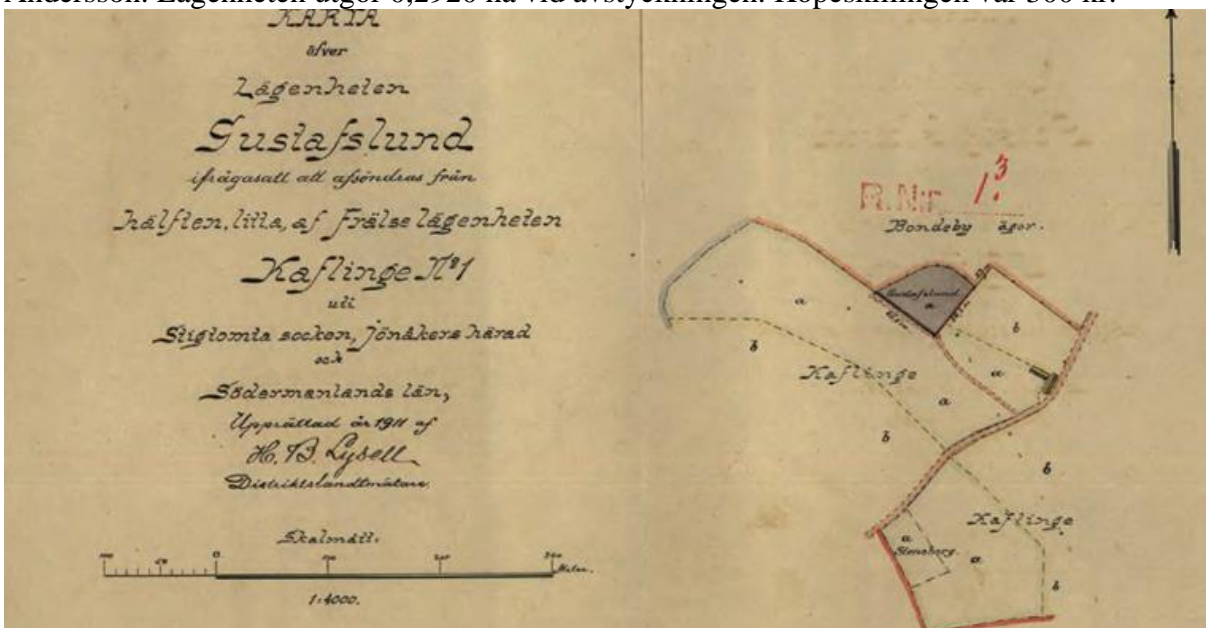 Andersson. Lägenheten utgör 0,2926 ha vid avstyckningen. Köpeskillingen var 300 kr.
KARTA
öfver
Lägenheten
Gustafslund
ifrågasatt att afsöndras från
hälften, litt a, af Frälselägenheten
Kaflinge No 1
uti
Stigtomta socken, Jönåkers härad
och
Södermanlands län,
Upprättad år 1911 af
H. B. Lysell
Distriktslandtmätare.
Skalmått.
100 50 0 100 200 300 Meter.
1:4000.
R. Nir 1.3
Bondeby ägor.
Gustafslund
a
a
b
b
Kaflinge
a
a
b
b
Kaflinge
a
Stensborg.
a
b